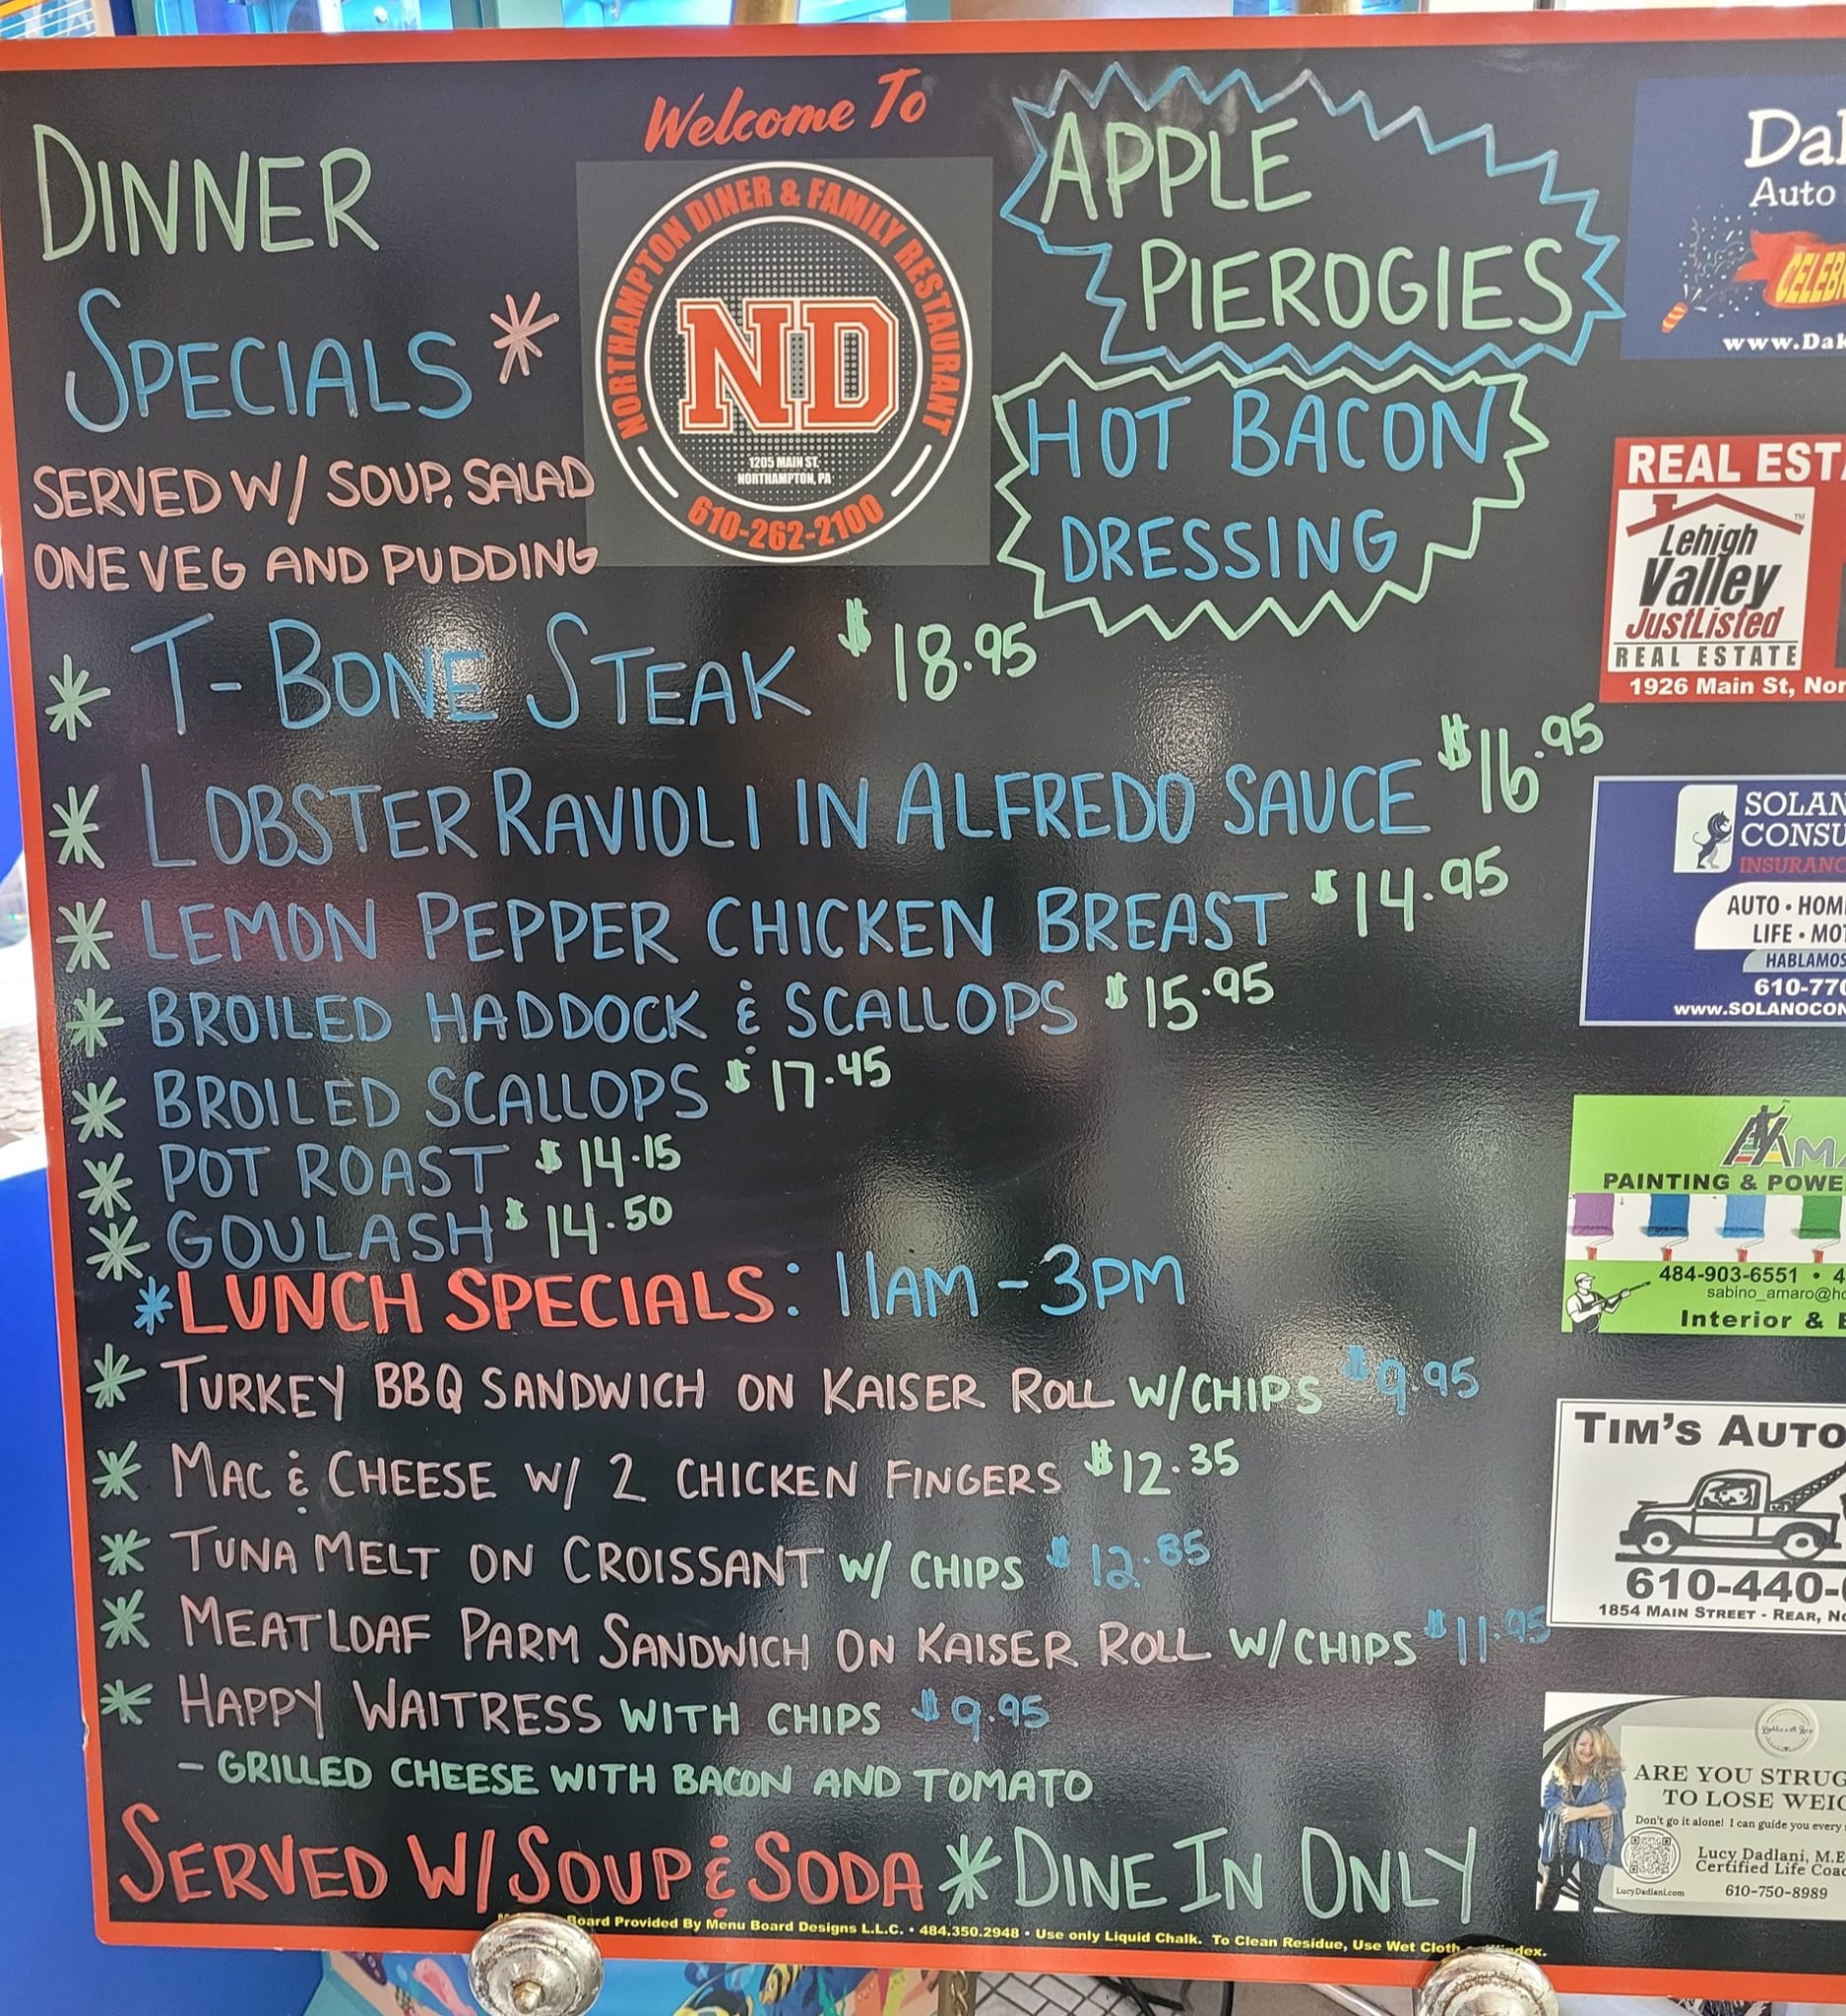 Welcome To
DINNER
SPECIALS *
SERVED W/ SOUP, SALAD
ONE VEG AND PUDDING
NORTHAMPTON DINER & FAMILY RESTAURANT
ND
1205 MAIN ST.
NORTHAMPTON, PA
610-262-2100
APPLE
PIEROGIES
HOT BACON
DRESSING
* T-BONE STEAK $18.95
* LOBSTER RAVIOLI IN ALFREDO SAUCE $16.95
* LEMON PEPPER CHICKEN BREAST $14.95
* BROILED HADDOCK & SCALLOPS $15.95
* BROILED SCALLOPS $17.45
* POT ROAST $14.15
* GOULASH $14.50
* LUNCH SPECIALS: 11AM-3PM
* TURKEY BBQ SANDWICH ON KAISER ROLL W/CHIPS $9.95
* MAC & CHEESE W/ 2 CHICKEN FINGERS $12.35
* TUNA MELT ON CROISSANT W/ CHIPS $12.85
* MEATLOAF PARM SANDWICH ON KAISER ROLL W/CHIPS $11.95
* HAPPY WAITRESS WITH CHIPS $9.95
- GRILLED CHEESE WITH BACON AND TOMATO
SERVED W/ SOUP & SODA * DINE IN ONLY
Board Provided By Menu Board Designs L.L.C. • 484.350.2948 • Use only Liquid Chalk. To Clean Residue, Use Wet Cloth
Auto
www.Dak
REAL EST
Lehigh
Valley
JustListed
REAL ESTATE
1926 Main St, Nor
SOLAN
CONSU
INSURANC
AUTO • HOM
LIFE • MOT
HABLAMOS
610-770
www.SOLANOCON
AMA
PAINTING & POWE
484-903-6551 • 4
sabino_amaro@ho
Interior & E
TIM'S AUTO
610-440-
1854 MAIN STREET - REAR, NO
ARE YOU STRUG
TO LOSE WEIG
Don't go it alone! I can guide you every
Lucy Dadlani, M.E
Certified Life Coac
LucyDadlani.com
610-750-8989